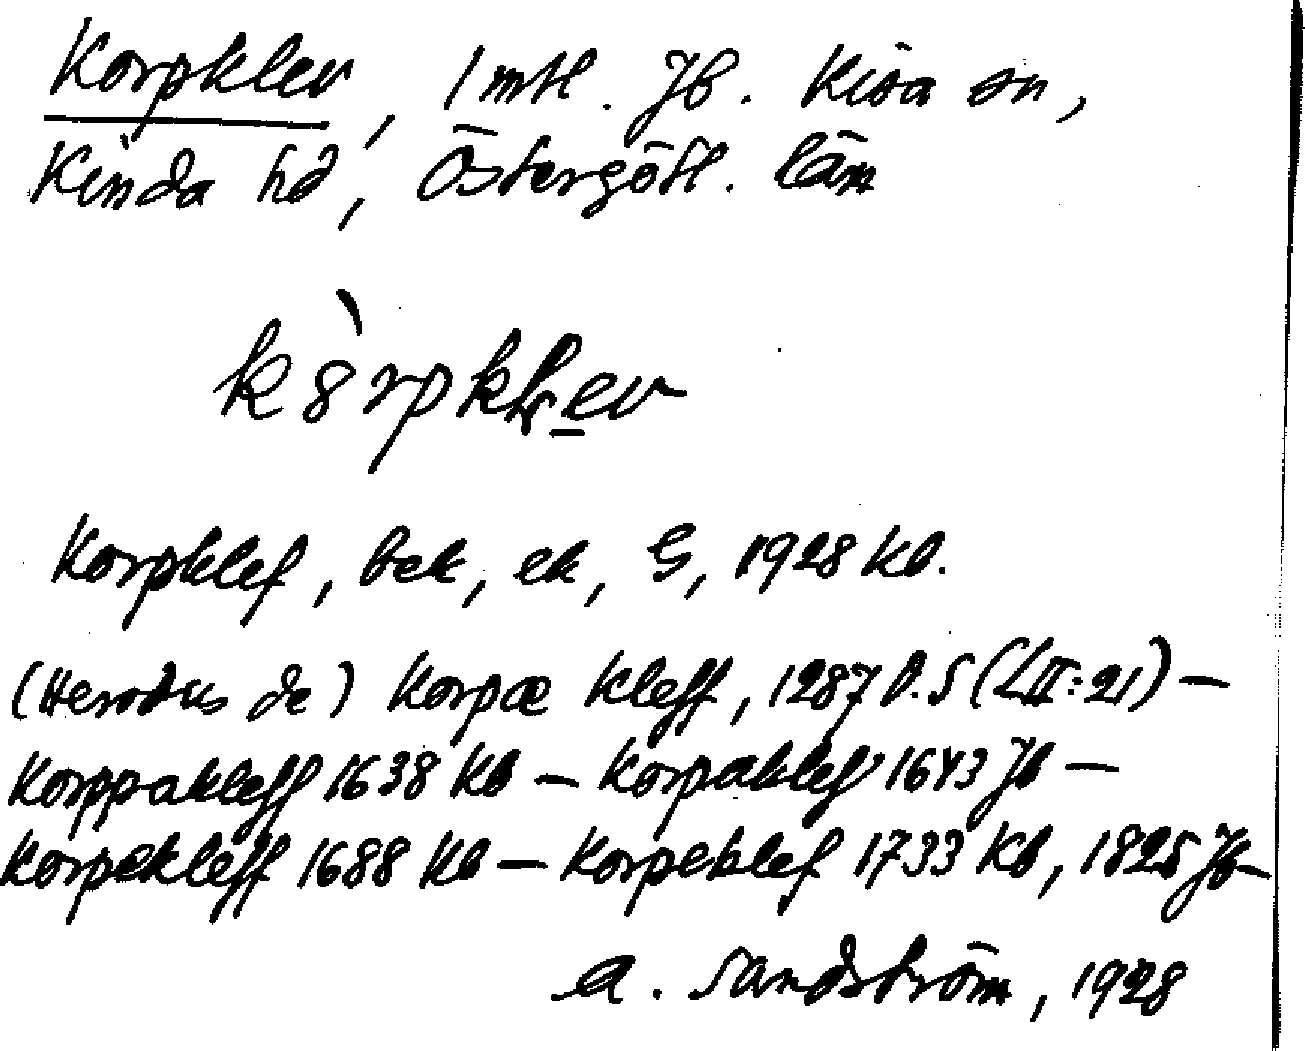 Korpklev, 1 mtl. Jb. Kisa sn,
Kinda hd, Östergötl. län
kòrpklev
Korpklef, bek, ek, G, 1928 Kb.
(Herodus de) Korpæ kleff, 1287 D.S (LII:21) —
Korppakleff 1638 Kb — Korpaklef 1643 Jb —
Korpekleff 1688 Kb — Korpeklef 1733 Kb, 1825 Jb —
A. Sandström, 1928